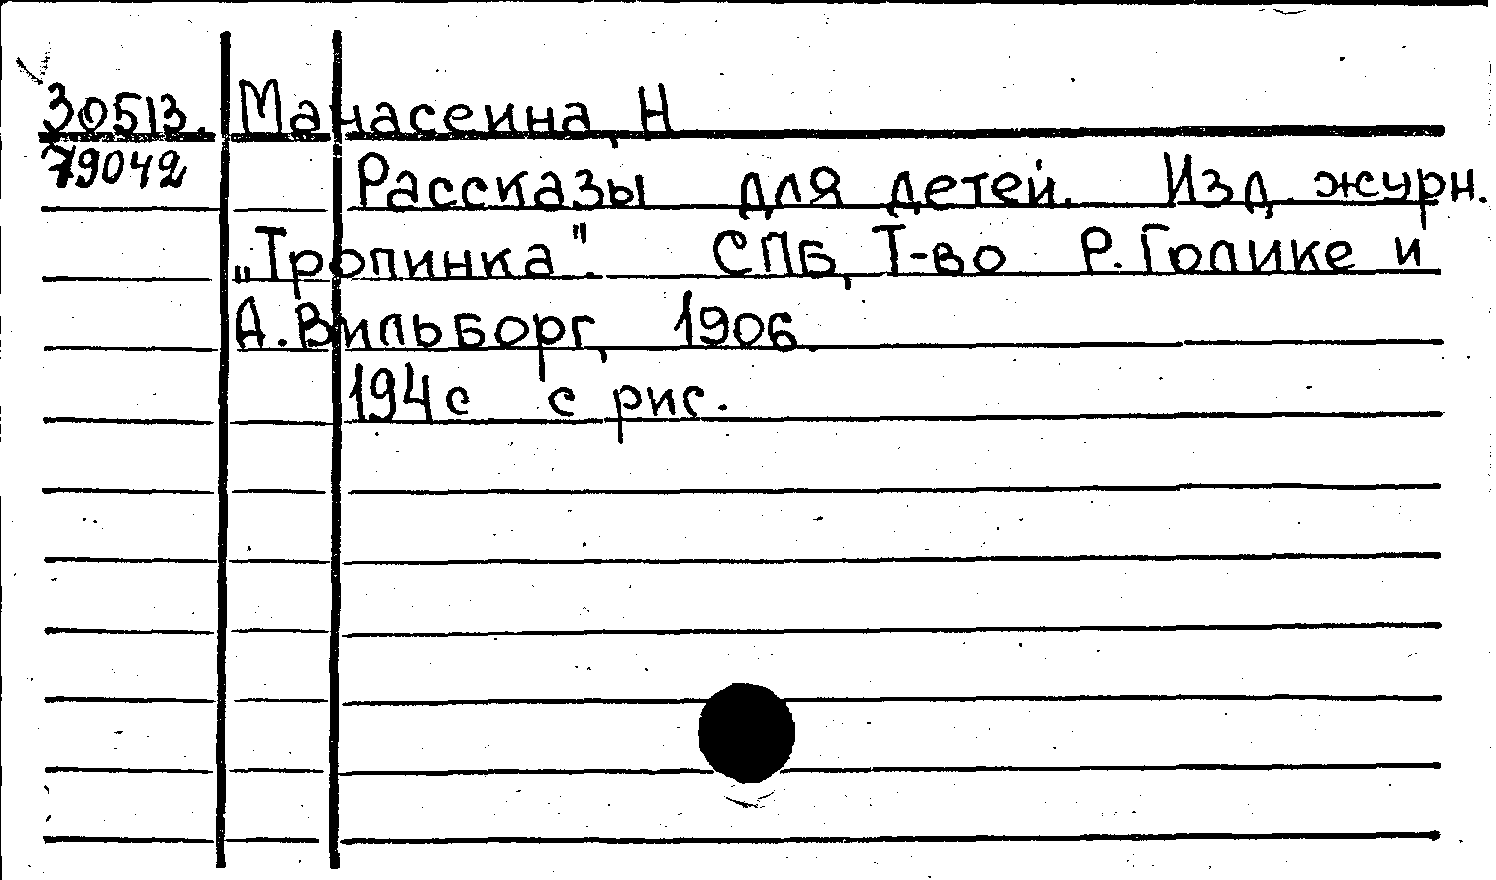 30513. Манасеина, Н
79042 Рассказы для детей. Изд. журн.
„Тропинка". СПБ, Т-во Р. Голике и
А. Вильборг, 1906.
194 с с рис.